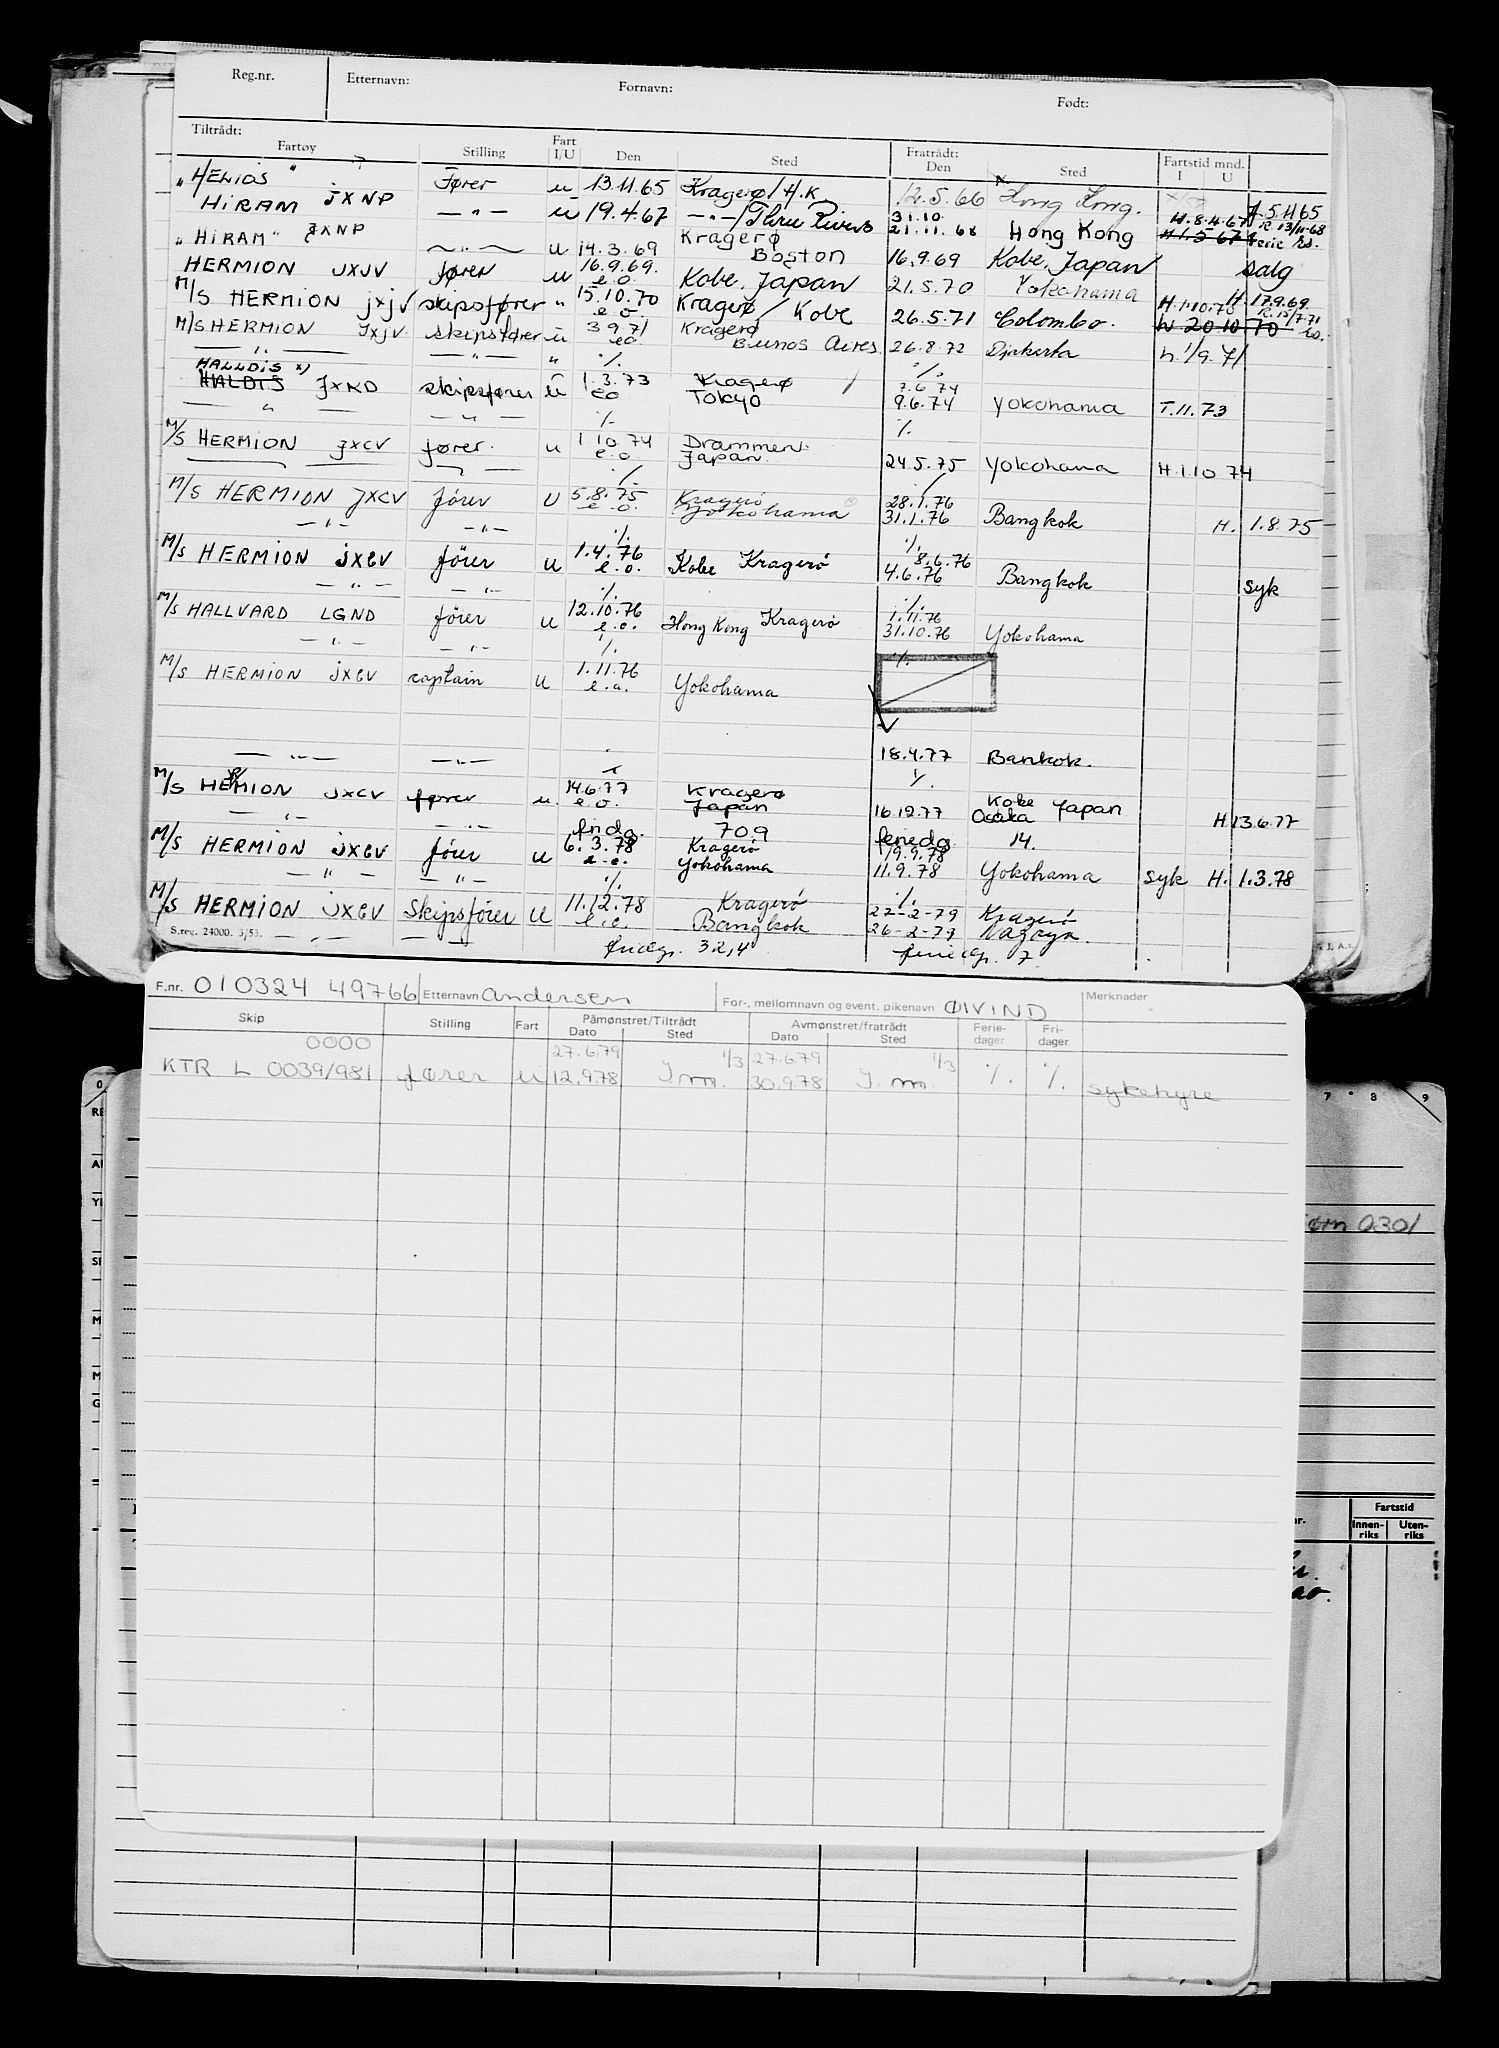 Reg.nr. Etternavn: Fornavn: Født:
Tiltrådt: Fratrådt:
Fartøy Stilling Fart I/U Den Sted Den Sted Fartstid mnd. I U
"HELIOS" Fører u 13.11.65 Kragerø/H.K 12.5.66 Hong Kong. f. 5.11.65
HIRAM JXNP — " — u 19.4.67 — " — /Three Rivers 31.10 21.11.68 Hong Kong H. 8.4.67 R. 13/11-68
H 1.5 67 ferie
"HIRAM" JXNP — " — u 14.3.69 Kragerø Boston 16.9.69 Kobe, Japan salg
HERMION JXJV fører u 16.9.69. e.o. Kobe, Japan 21.5.70 Yokohama H. 17.9.69
M/S HERMION JXJV skipsfører " 15.10.70 e.o. Kragerø / Kobe 26.5.71 Colombo. H. 1.10.70 R. 15/7.71
h 20 10 70
M/S HERMION JXJV skipsfører u 3 9 71 eo Kragerø Bunos Aires 26.8.72 Djakarta h. 1/9. 71
— " — — " — " %. %.
HALLDIS x)
HALDIS JXKD skipsfører u 1.3.73 eo Kragerø Tokyo 7.6.74 9.6.74 Yokohama T.11.73
— " — — " — %. %.
M/S HERMION JXCV fører. u 1.10.74 e.o. Drammen. Japan. 24.5.75 Yokohama H.1.10 74
M/S HERMION JXCV fører U 5.8.75 e.o. Kragerø Yokohama 28.1.76 31.1.76 Bangkok H. 1.8.75
— " — — " — %. %.
M/S HERMION JXCV fører u 1.4.76 e.o. Kobe Kragerø 8.6.76 4.6.76 Bangkok syk
— " — — " — %. %.
M/S HALLVARD LGND fører u 12.10.76 e.o. Hong Kong Kragerø 1.11.76 31.10.76 Yokohama
— " — — " — %. %.
M/S HERMION JXCV captain u 1.11.76 e.o. Yokohama
— " — — " — 18.4.77 Bankok.
M/S HERMION JXCV fører u. 14.6.77 e.o. Kragerø Japan 16.12.77 Kobe Osaka Japan H 13.6.77
— " — — " — fridg. 709 feriedg. 14.
M/S HERMION JXCV fører u 6.3.78 e.o. Kragerø Yokohama 19.9.78 11.9.78 Yokohama syk H. 1.3.78
— " — — " — %. %.
M/S HERMION JXCV Skipsfører U 11.12.78 e.o. Kragerø Bangkok 27-2-79 26-2-79 Kragerø Nagoya.
S.reg. 24000. 3/51. — " — — " — fridgr. 32,4 feriedgr. 7.
F.nr. 010324 49766 Etternavn Andersen For-, mellomnavn og event. pikenavn ØIVIND Merknader
Skip Stilling Fart Påmønstret/Tiltrådt Dato Sted Avmønstret/fratrådt Dato Sted Ferie-dager Fri-dager
0000 27.6.79 1/3 27.6.79 1/3
KTR L 0039/981 fører u 12.9.78 J.m. 30.9.78 J.m. %. %. sykehyre
7 8 9
0301
Fartstid
Innen-riks Uten-riks